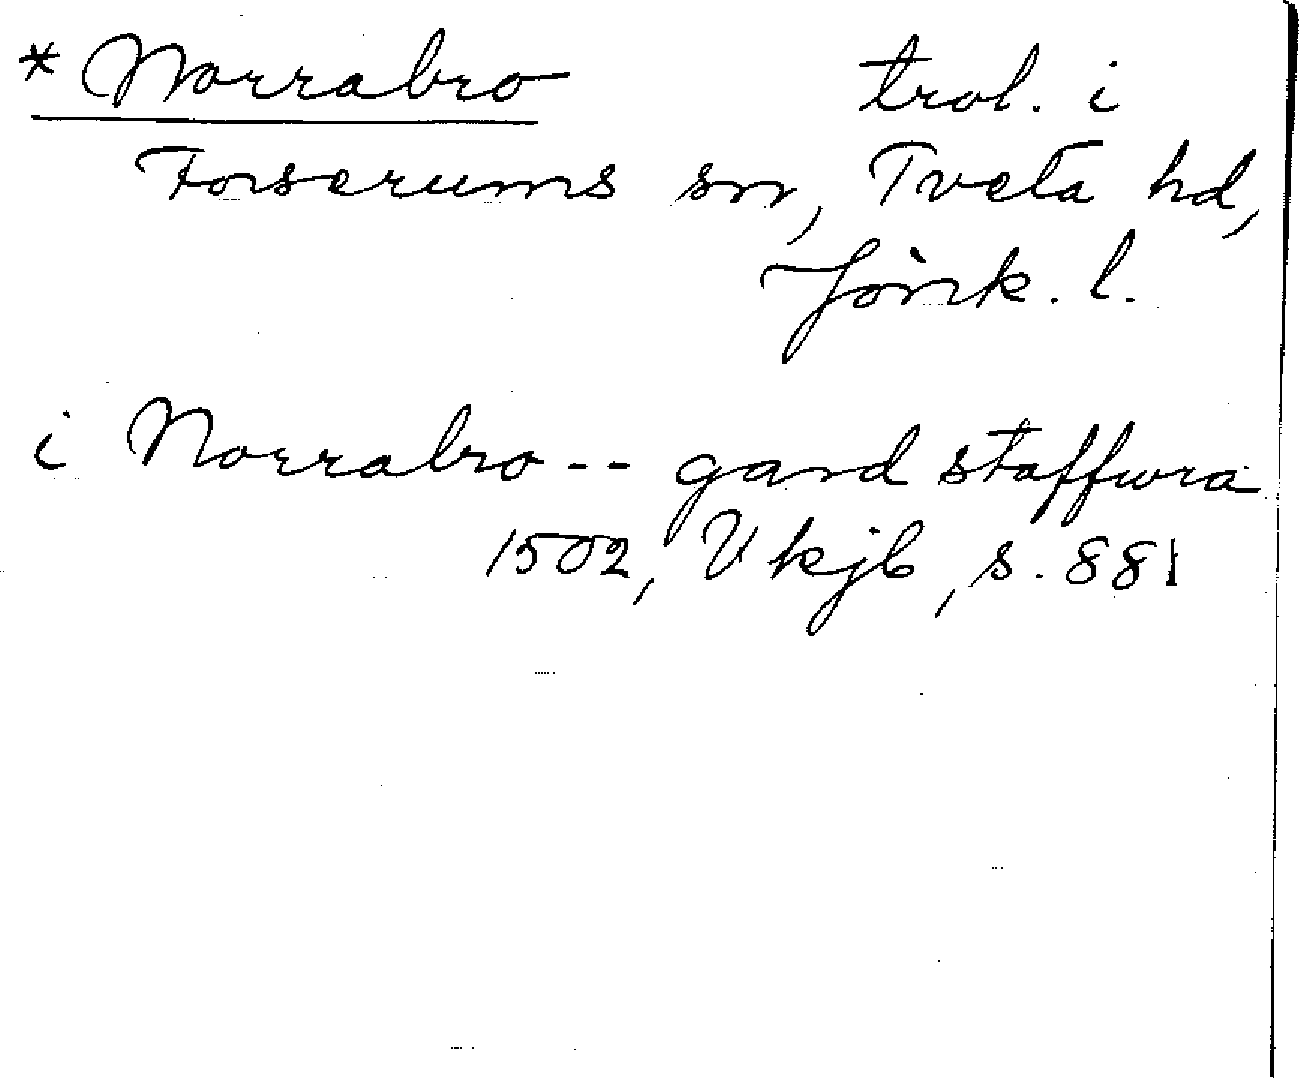 * Norrabro trol. i
Forserums sn, Tveta hd,
Jönk. l.
i Norrabro -- gard staffwra
1502, Vkjb, s. 881